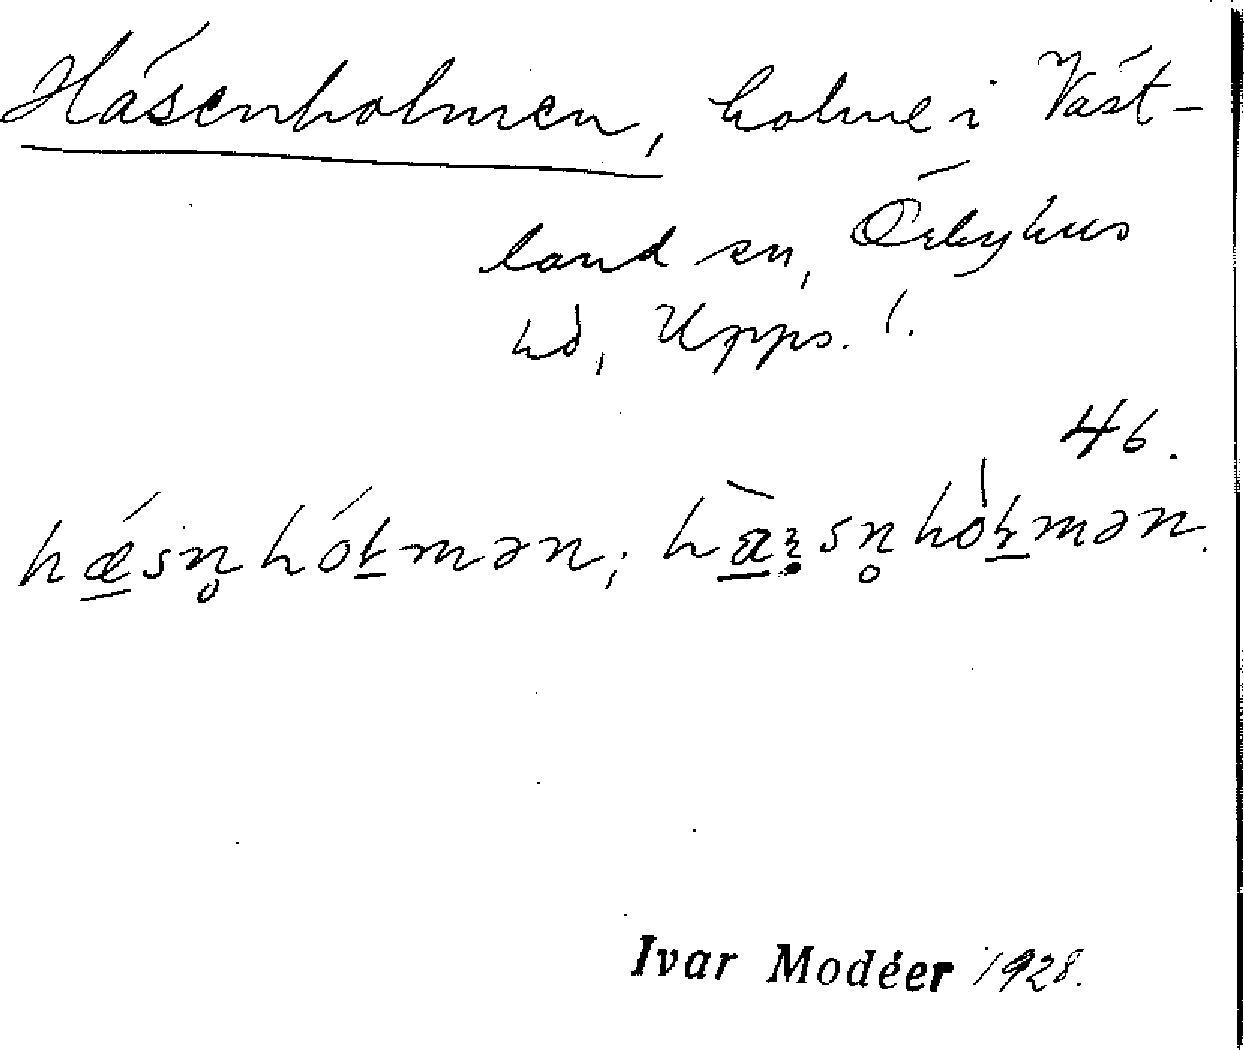 Häsenholmen, holme i Väst-
land sn, Örbyhus
hd, Upps. l.
46.
hǽsn̥hół̱mən; hæ̀ꝛsn̥hòł̱mən.
Ivar Modéer 1928.